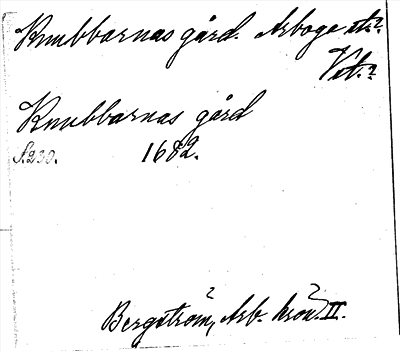 Knubbarnas gård. Arboga st.?
Vstm.?
Knubbarnas gård
S. 230. 1682.
Bergström, Arb. krön. II.